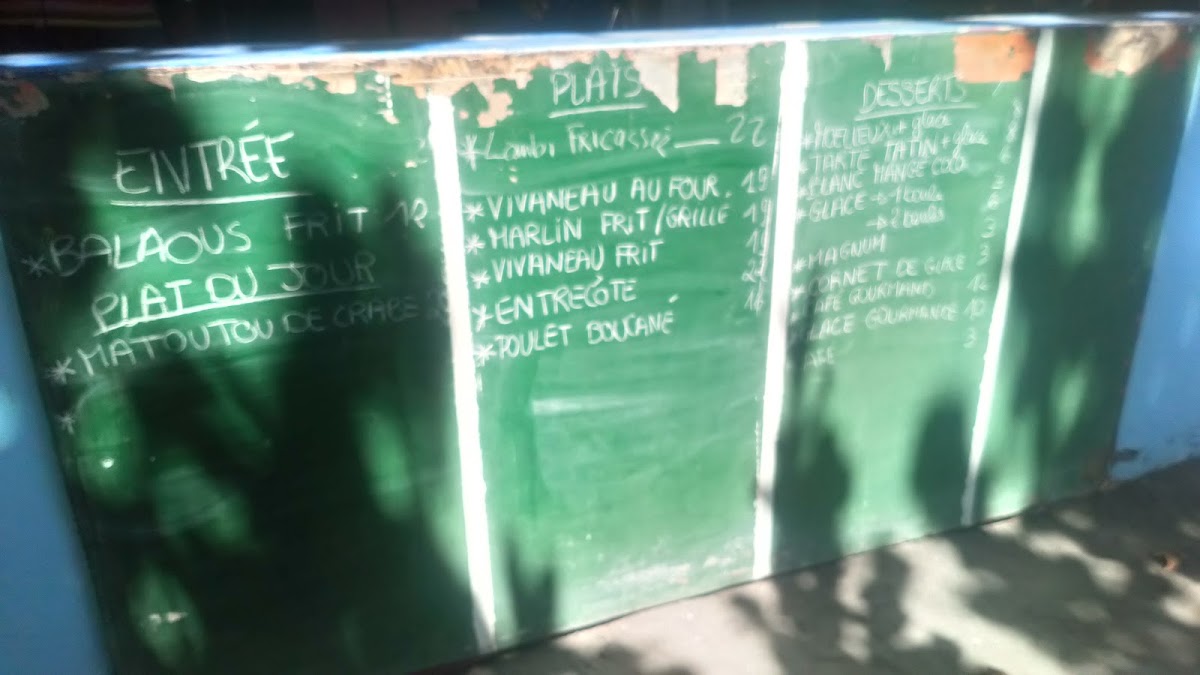 ENTRÉE
* BALAOUS FRIT 12
PLAT DU JOUR
* MATOUTOU DE CRABE
*
PLATS
* Lambi FRICASSÉ — 22
* VIVANEAU AU FOUR. 19
* MARLIN FRIT/GRILLÉ 19
* VIVANEAU FRIT 19
* ENTRECÔTE
* POULET BOUCANÉ
DESSERTS
* MOELLEUX + glace
* TARTE TATIN + glace
* BLANC MANGE COCO
* GLACE → 1 boule
→ 2 boules
* MAGNUM 3
* CORNET DE GLACE 3
CAFE GOURMAND 12
GLACE GOURMANDE 10
CAFE